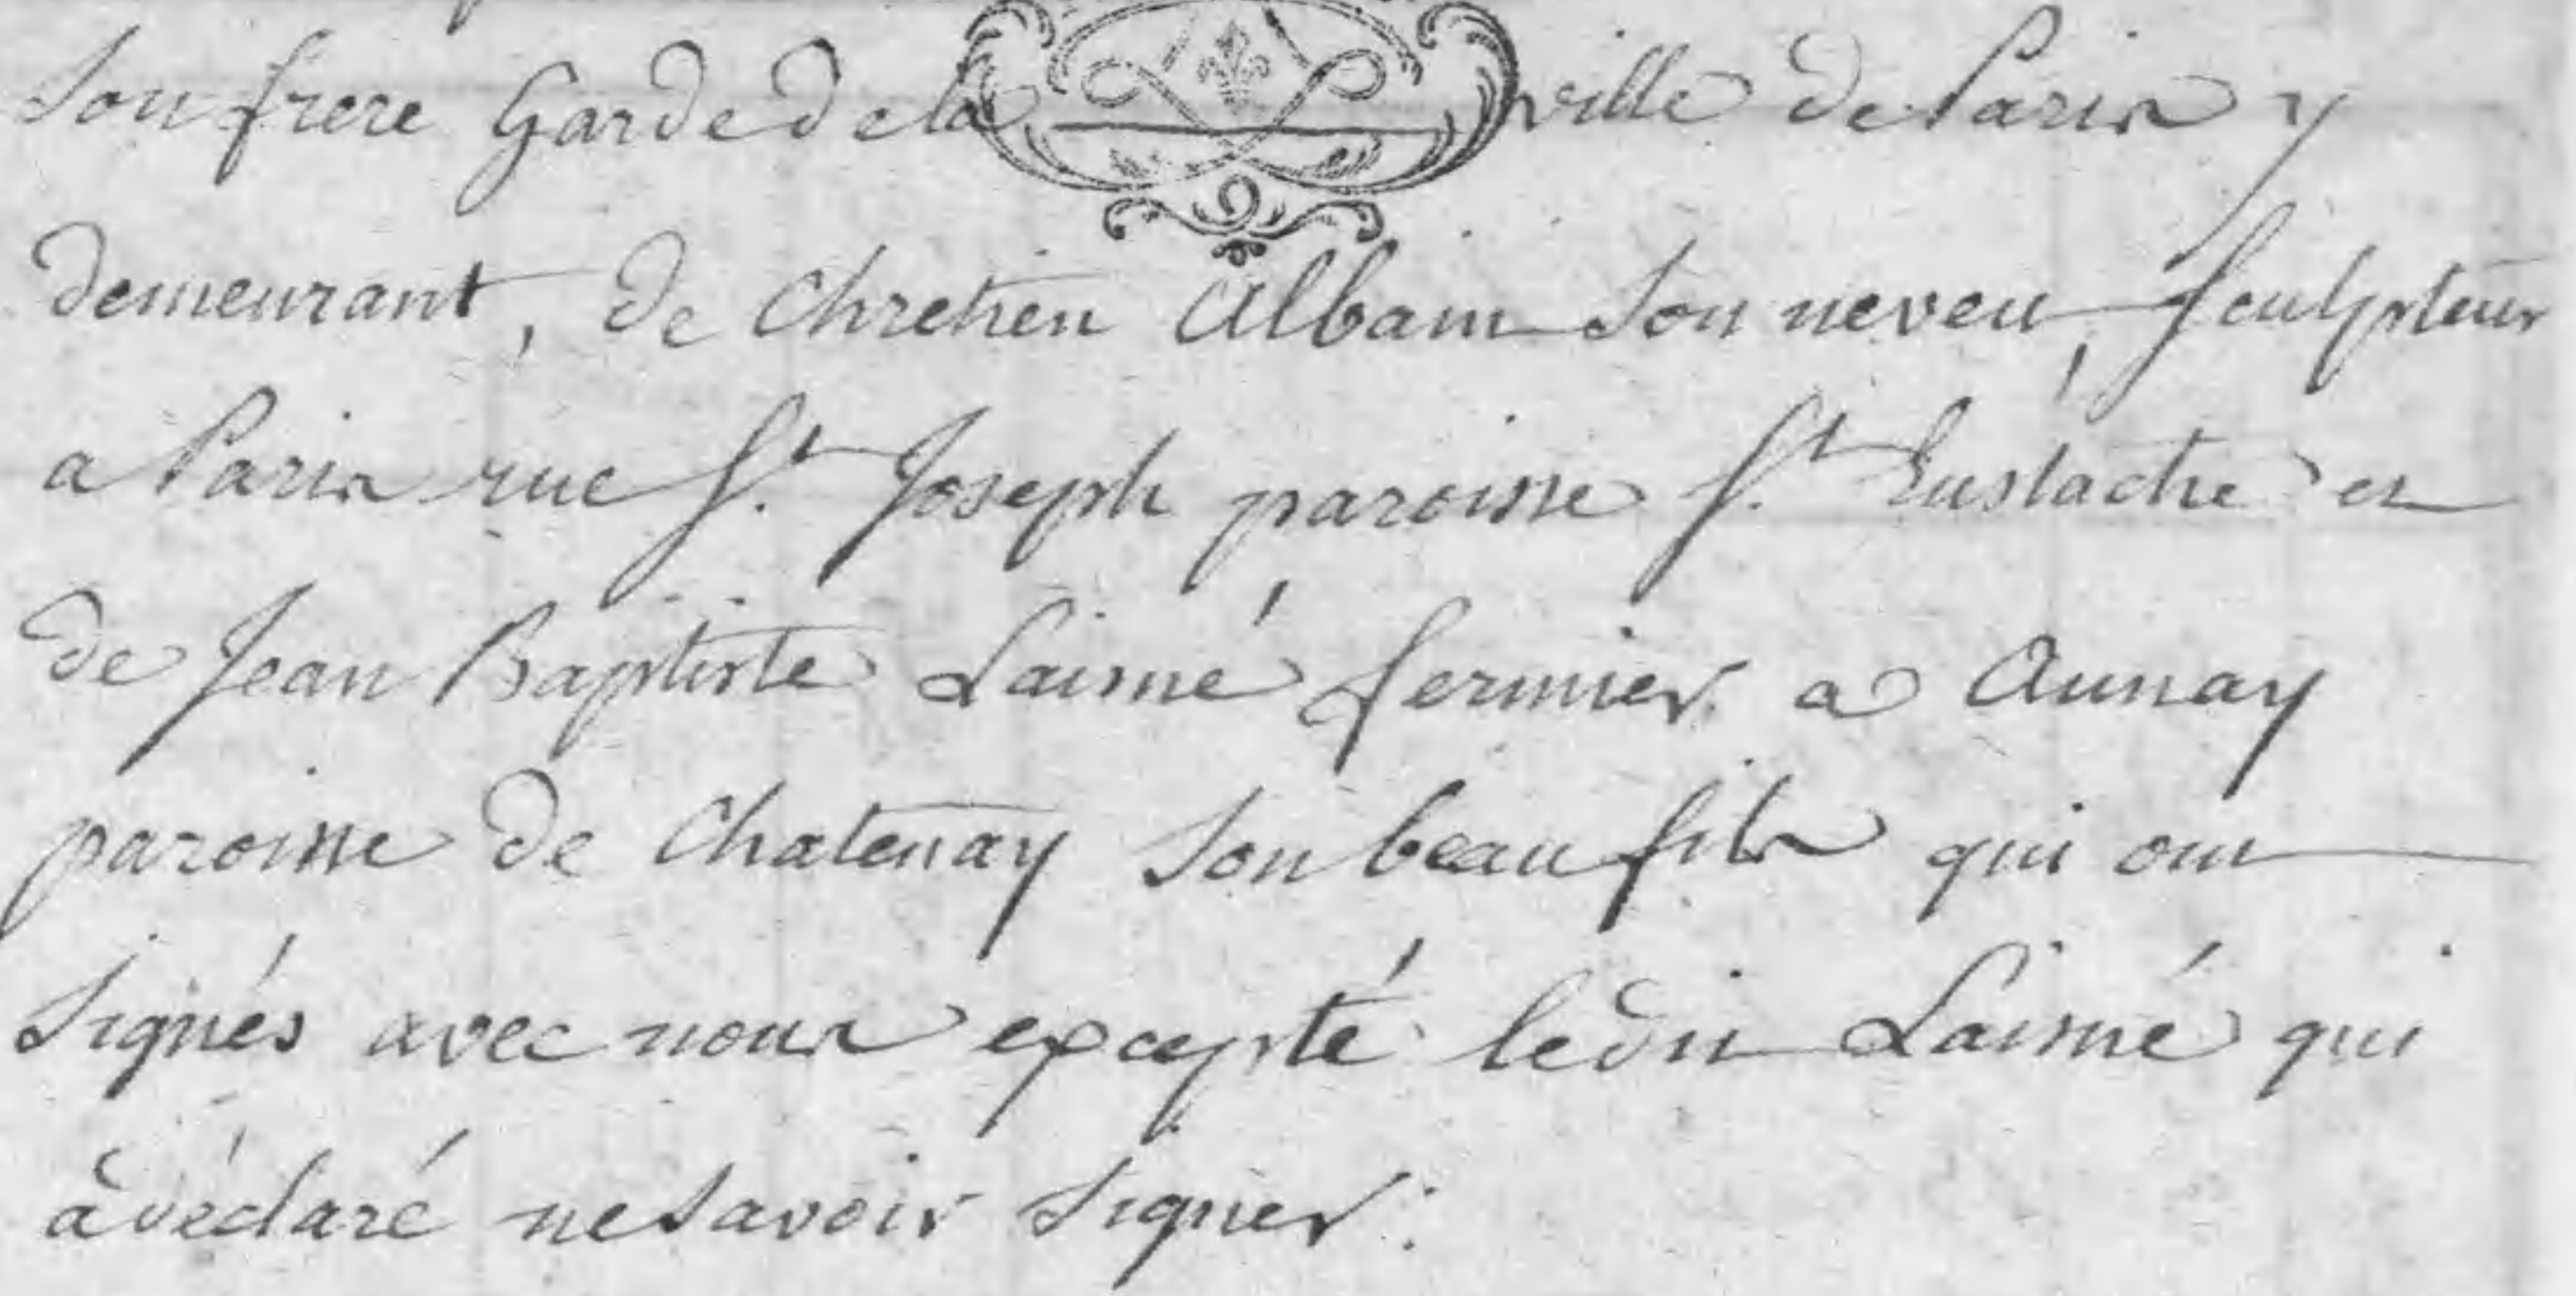 son frere Garde de la ville de Paris y
demeurant, de Chretien Albain son neveu, sculpteur
a Paris rue St. Joseph paroisse St. Eustache et
de Jean Baptiste Laimé fermier a Aunay
paroisse de Chatenay son beau fils qui ont
signés avec nous excepté ledit Laimé qui
à déclaré ne savoir signer.